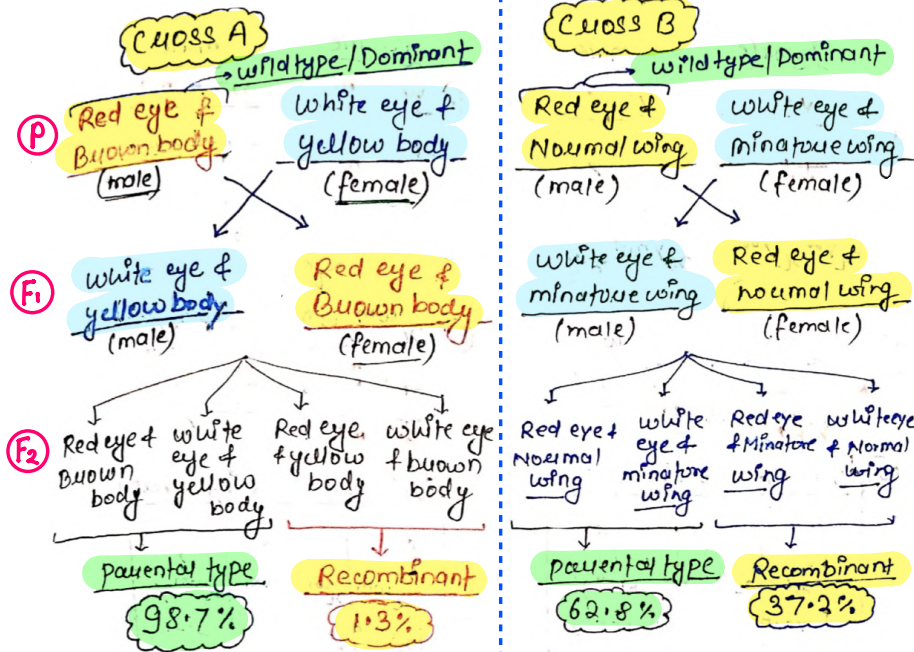 Cross A
wildtype/Dominant
P
Red eye &
Brown body
(male)
White eye &
yellow body
(female)
F1
White eye &
yellow body
(male)
Red eye &
Brown body
(female)
F2
Red eye &
Brown
body
white
eye &
yellow
body
Red eye
& yellow
body
white eye
& brown
body
parental type
98.7%
Recombinant
1.3%
Cross B
wildtype/Dominant
Red eye &
Normal wing
(male)
White eye &
minatoure wing
(female)
White eye &
minatoure wing
(male)
Red eye &
normal wing
(female)
Red eye &
Normal
wing
white
eye &
minatore
wing
Red eye
& Minatore
wing
white eye
& Normal
wing
parental type
62.8%
Recombinant
37.2%